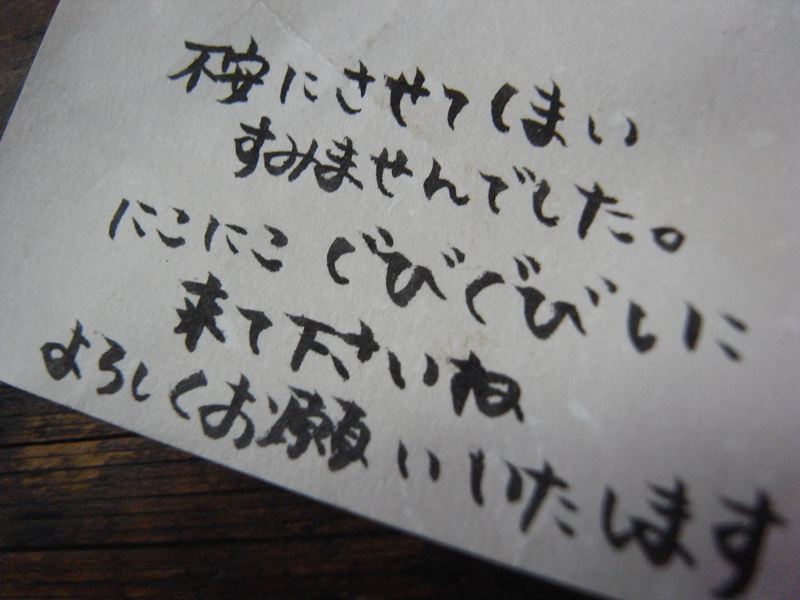 不安にさせてしまい
すみませんでした。
にこにこ ぐびぐびしに
来て下さいね
よろしくお願いいたします